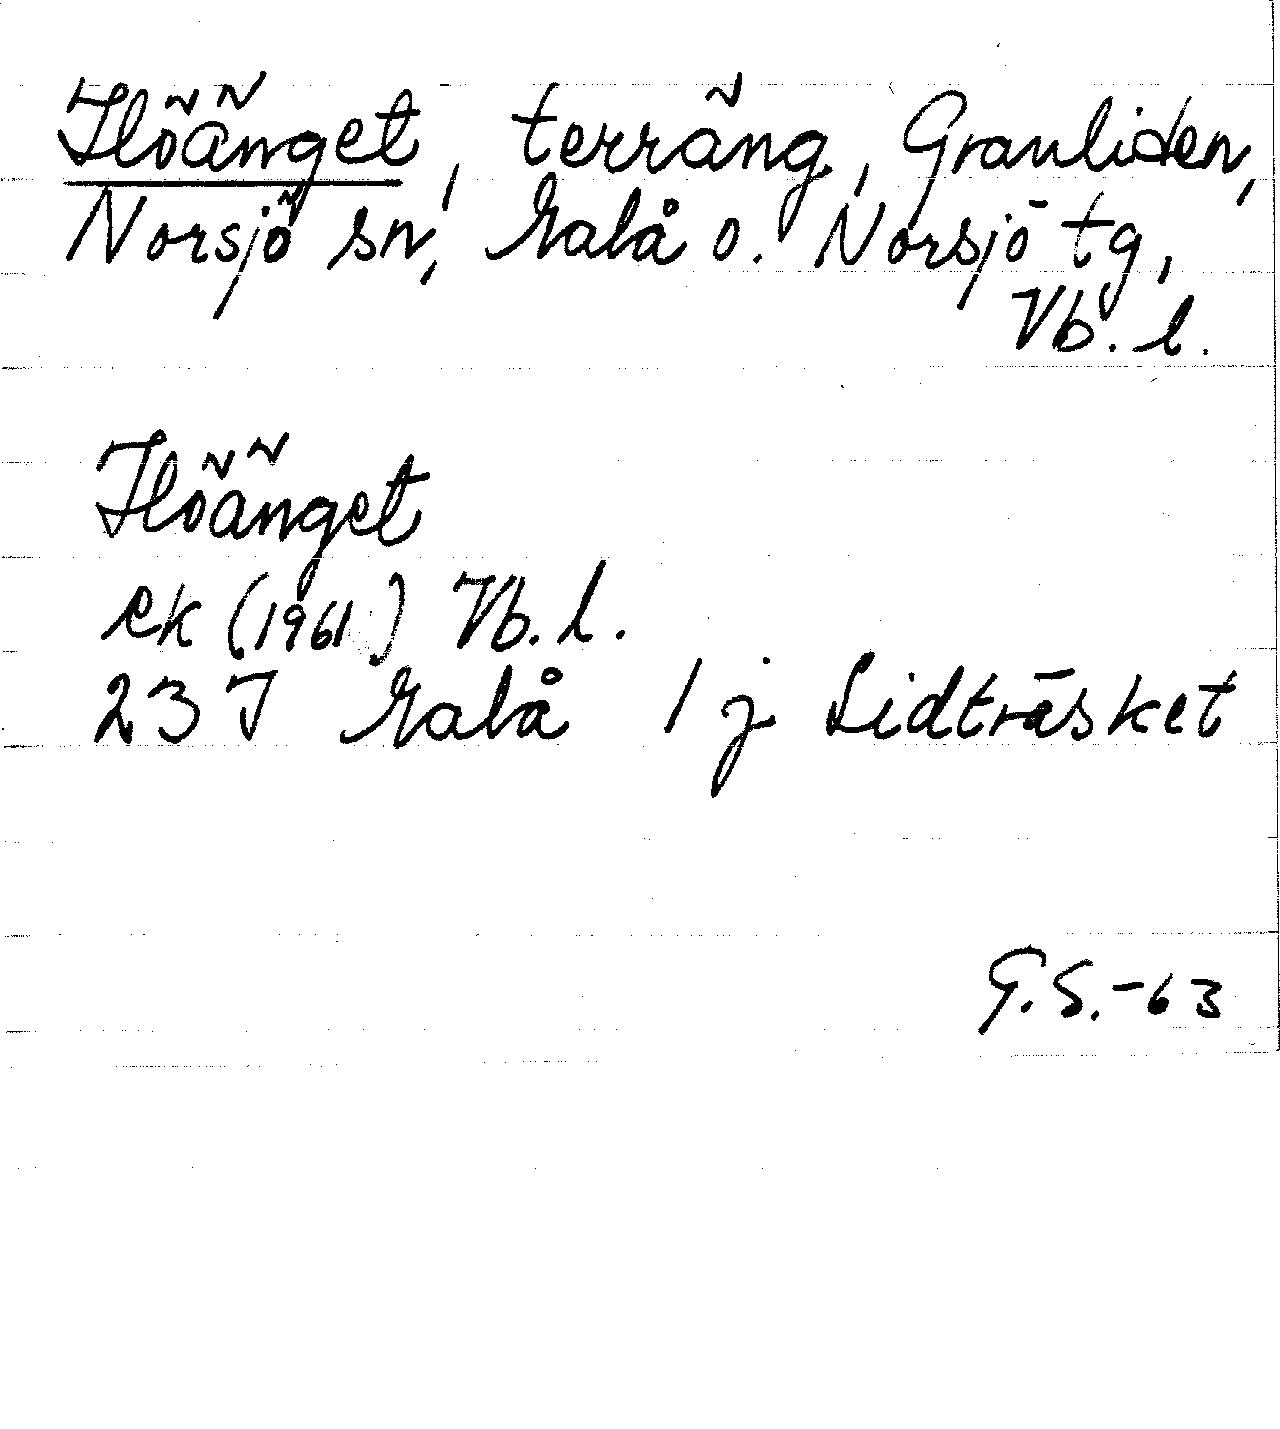 Ilöänget, terräng, Granliden,
Norsjö sn, Malå o. Norsjö tg,
Vb. l.
Ilöänget
ek (1961) Vb. l.
23 J Malå 1 j Lidträsket
G.S.-63